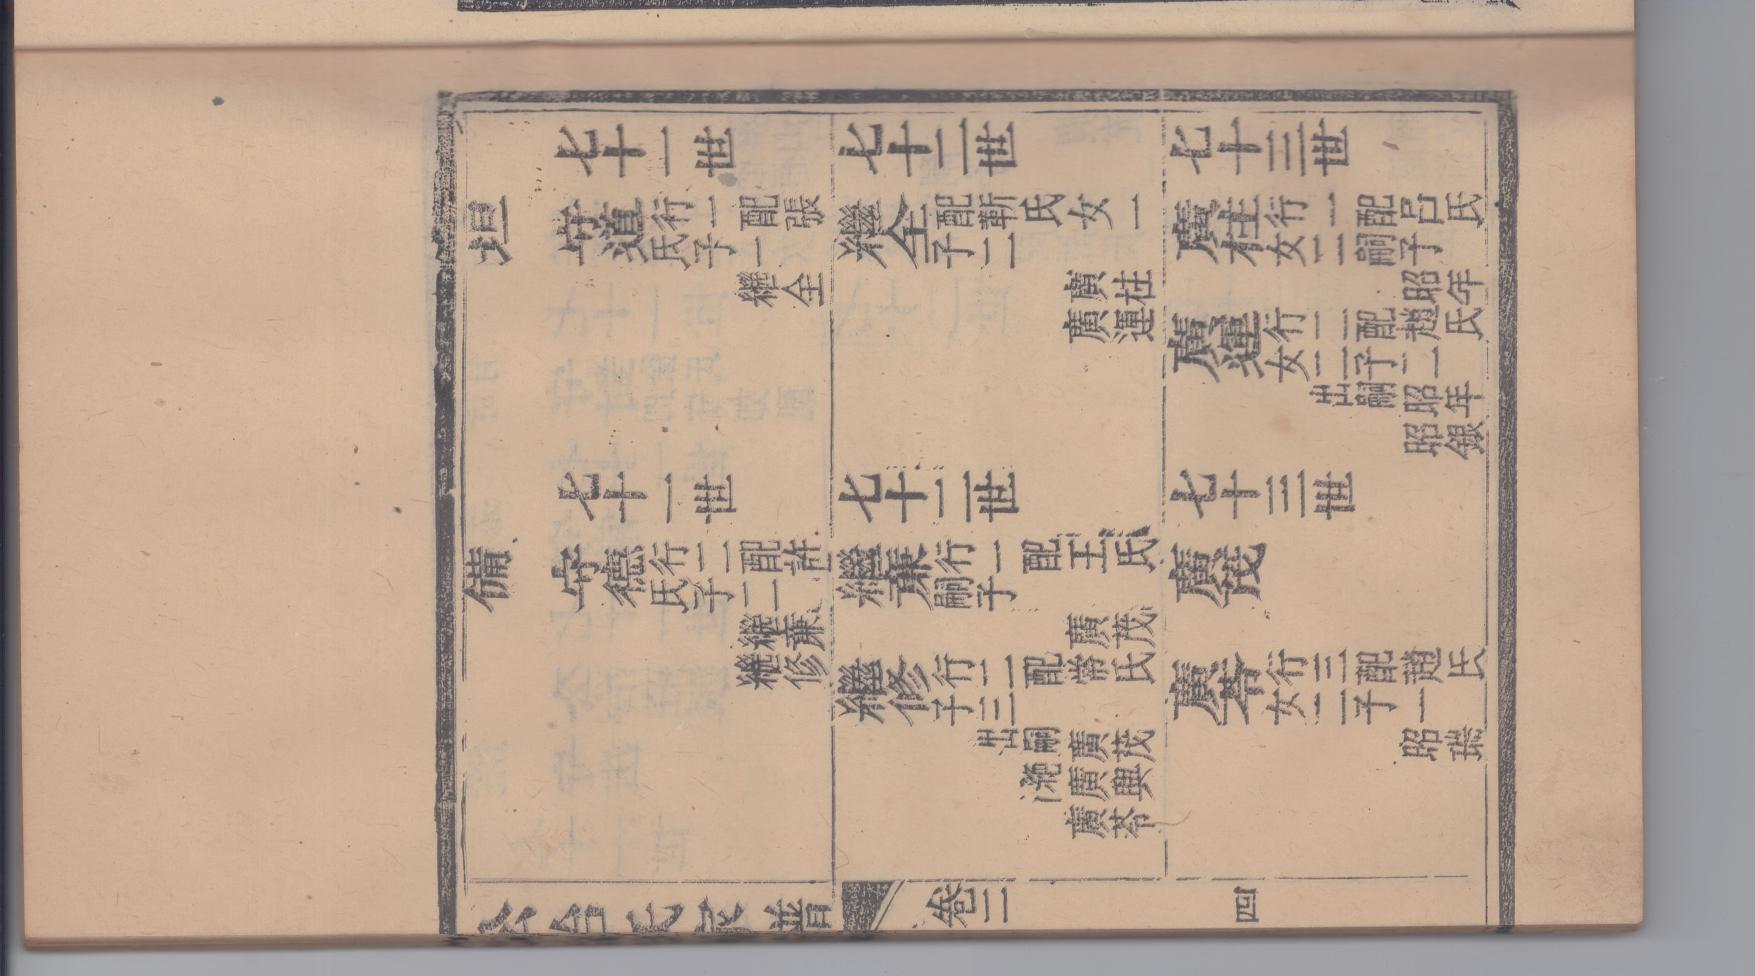 七十一世 七十二世 七十三世
坦 守道 行一配張
氏子一
繼全
繼全 配靳氏女一
子二
廣柱
廣運
廣柱 行一配呂氏
女一嗣子
昭年
廣運 行二配趙氏
女二子二
出嗣昭年
昭銀
七十一世 七十二世 七十三世
備 守德 行二配許
氏子二
繼廉
繼修
繼廉 行一配王氏
嗣子
廣茂
繼修 行二配常氏
子三
出嗣廣茂
廣興
廣苓
廣茂
廣苓 行三配趙氏
女二子一
昭瑞
氏家譜 卷二 四